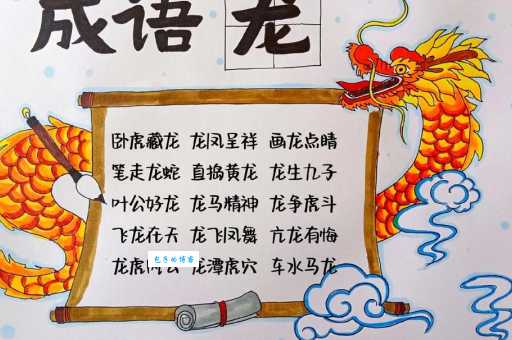 成语 龙
卧虎藏龙 龙凤呈祥 画龙点睛
笔走龙蛇 直捣黄龙 龙生九子
叶公好龙 龙马精神 龙争虎斗
飞龙在天 龙飞凤舞 亢龙有悔
龙虎 龙潭虎穴 车水马龙